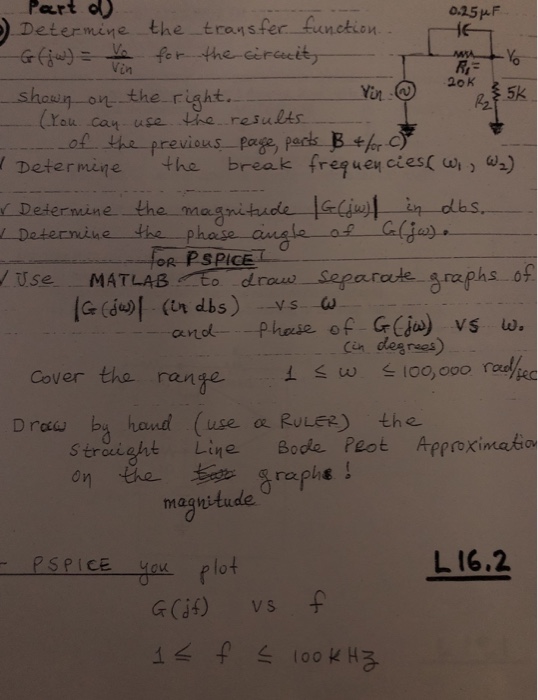 Part d)
) Determine the transfer function
G(jω) = Vo/Vin for the circuit,
shown on the right.
(You can use the results
of the previous page, parts B +/or C)
0.25μF
R1=
20K
Vo
Vin
R2
5K
Determine the break frequencies (ω1, ω2)
√ Determine the magnitude |G(jω)| in dbs.
√ Determine the phase angle of G(jω).
OR PSPICE!
√ Use MATLAB to draw separate graphs of
|G(jω)| (in dbs) vs ω
and Phase of G(jω) vs ω.
(in degrees)
Cover the range 1 ≤ ω ≤ 100,000 rad/sec
Draw by hand (use a RULER) the
Straight Line Bode Plot Approximation
on the graphs!
magnitude
- PSPICE you plot
L16.2
G(jf) vs f
1 ≤ f ≤ 100 KHz